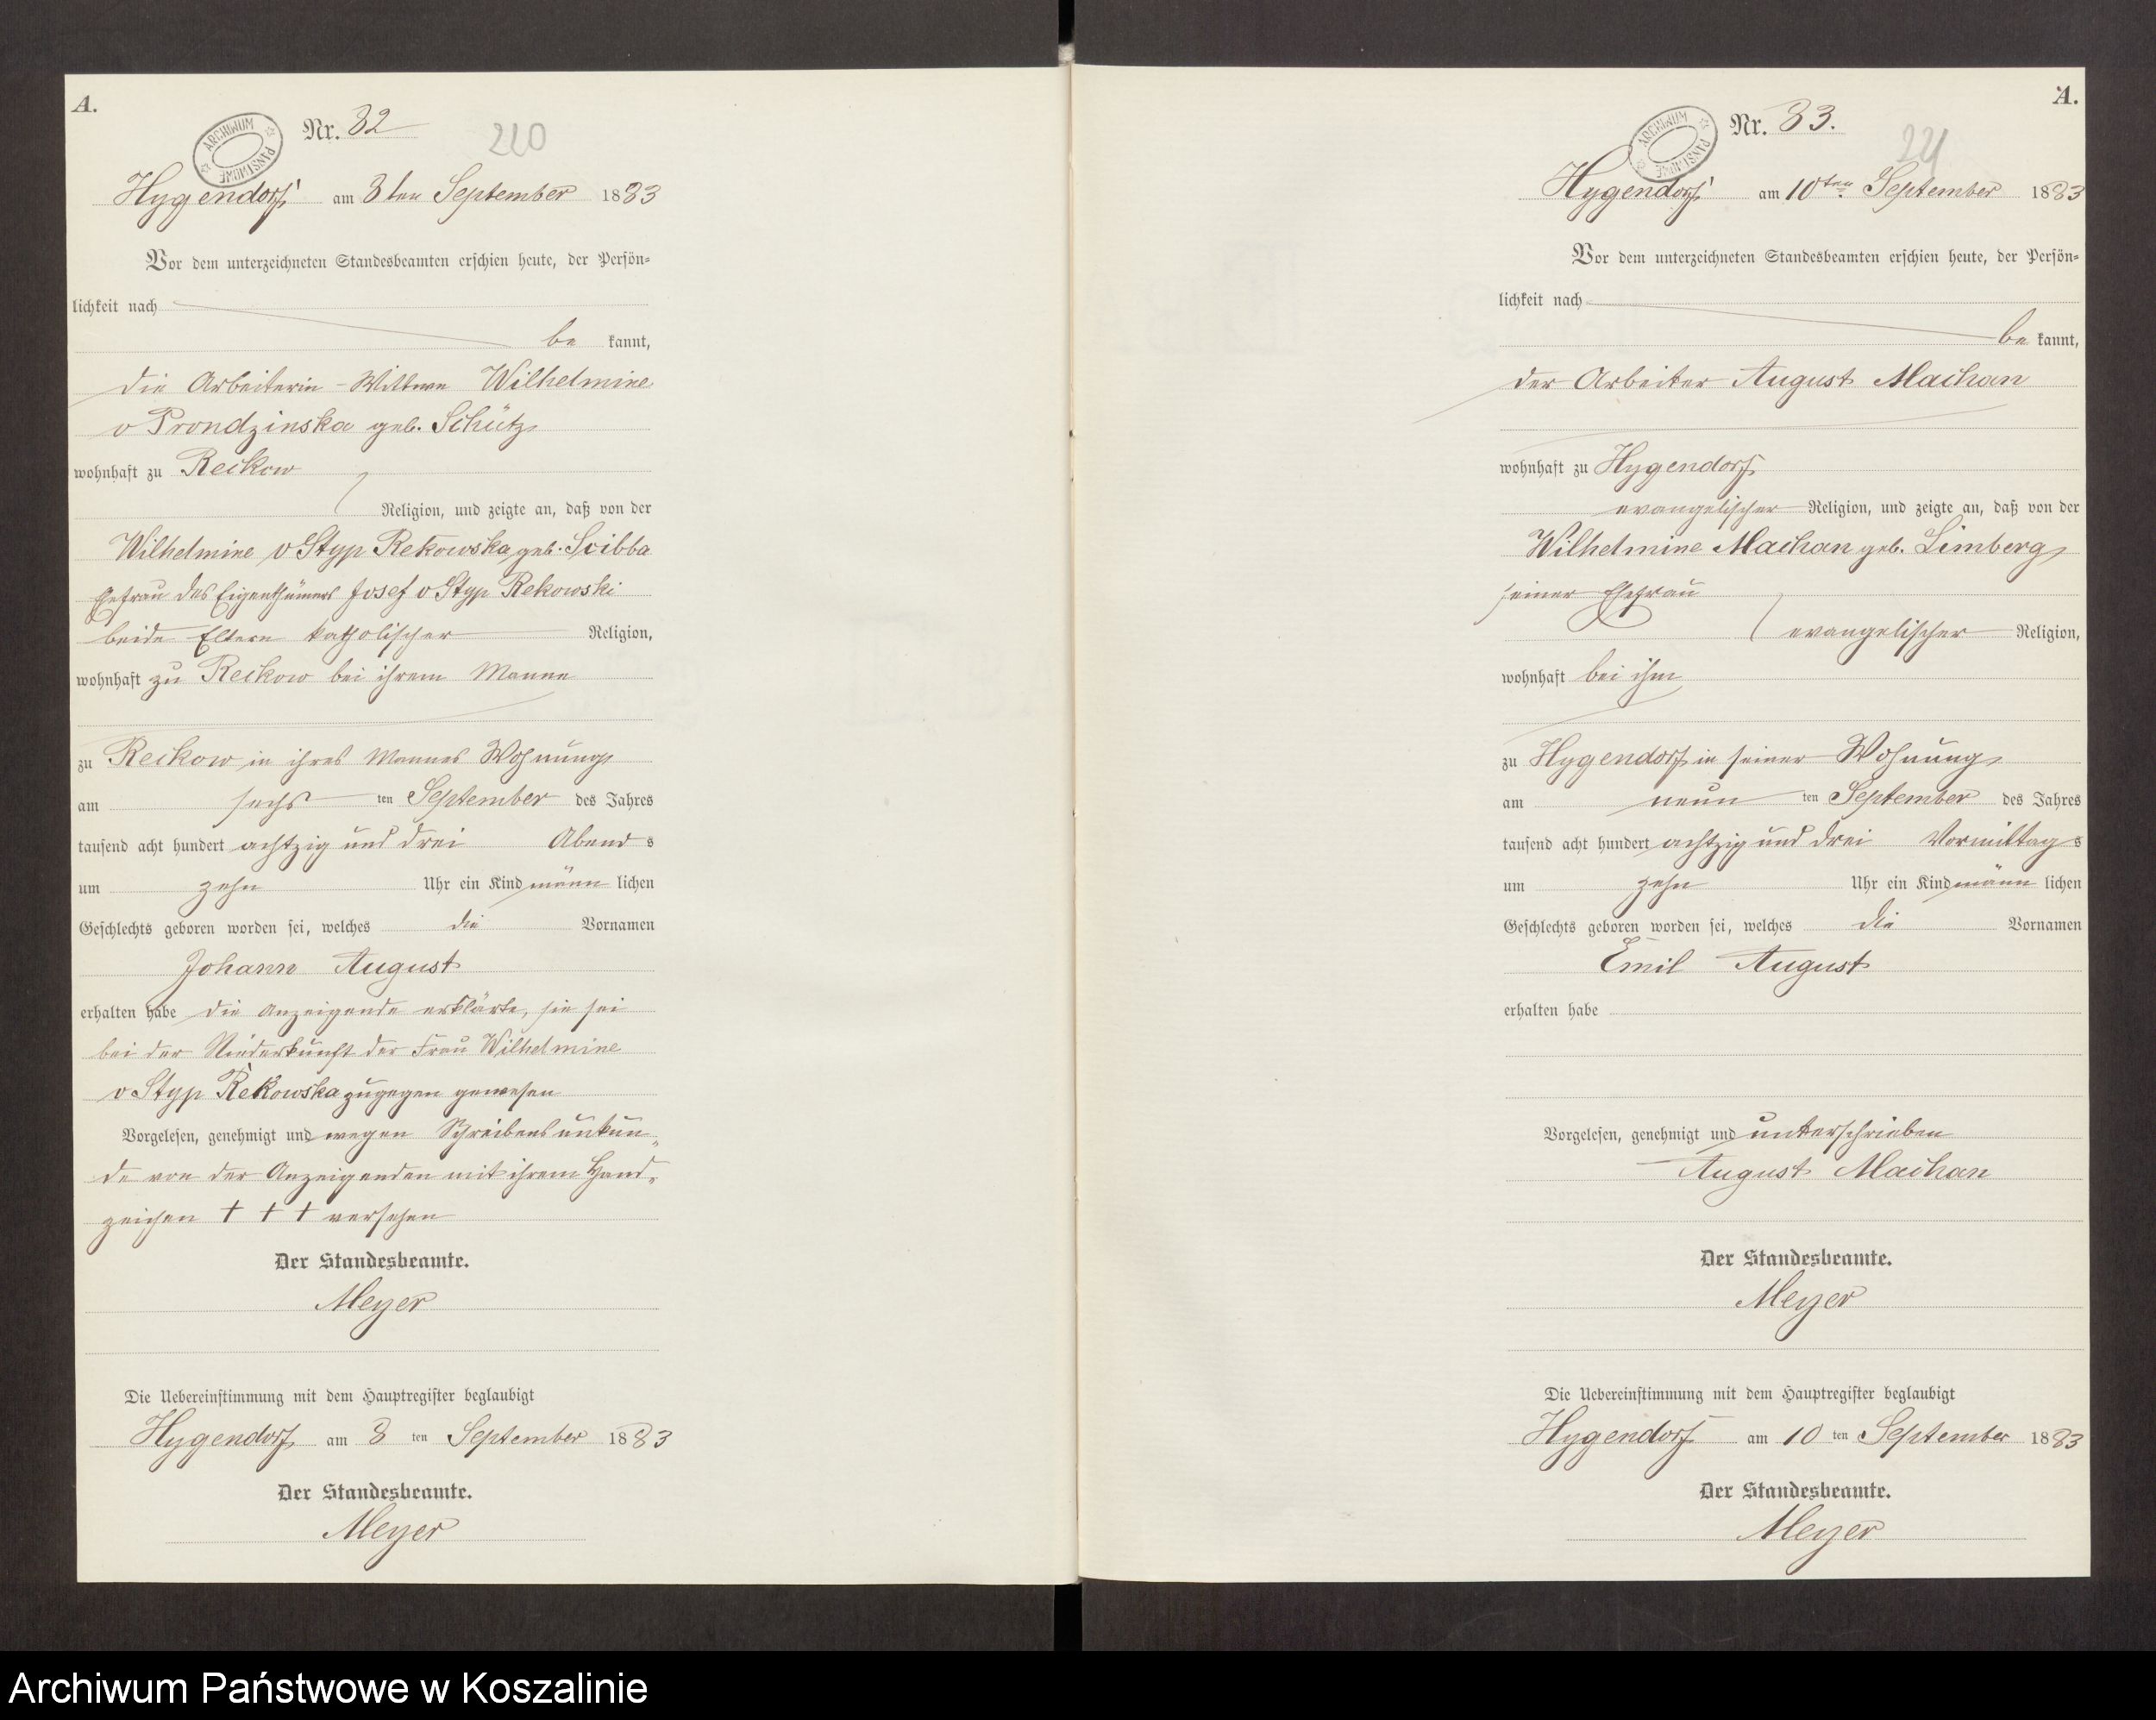 A.
ARCHIWUM PAŃSTWOWE
Nr. 82
220
Hygendorf am 8ten September 1883
Vor dem unterzeichneten Standesbeamten erschien heute, der Persön-
lichkeit nach
be kannt,
die Arbeiterin-Wittwe Wilhelmine
v Prondzinska geb. Schütz
wohnhaft zu Reckow
Religion, und zeigte an, daß von der
Wilhelmine v Styp Rekowska geb. Scibba
Ehefrau des Eigenthümers Josef v Styp Rekowski
beide Eltern katholischer Religion,
wohnhaft zu Reckow bei ihrem Manne
zu Reckow in ihres Mannes Wohnung
am sechs ten September des Jahres
tausend acht hundert achtzig und drei Abend s
um zehn Uhr ein Kind männ lichen
Geschlechts geboren worden sei, welches die Vornamen
Johann August
erhalten habe die Anzeigende erklärte, sie sei
bei der Niederkunft der Frau Wilhelmine
v Styp Rekowska zugegen gewesen
Vorgelesen, genehmigt und wegen Schreibensunkun-
de von der Anzeigenden mit ihrem Hand-
zeichen + + + versehen
Der Standesbeamte.
Meyer
Die Uebereinstimmung mit dem Hauptregister beglaubigt
Hygendorf am 8 ten September 1883
Der Standesbeamte.
Meyer
A.
ARCHIWUM PAŃSTWOWE
Nr. 83.
221
Hygendorf am 10ten September 1883
Vor dem unterzeichneten Standesbeamten erschien heute, der Persön-
lichkeit nach
be kannt,
der Arbeiter August Machan
wohnhaft zu Hygendorf
evangelischer Religion, und zeigte an, daß von der
Wilhelmine Machan geb. Limberg
seiner Ehefrau
evangelischer Religion,
wohnhaft bei ihm
zu Hygendorf in seiner Wohnung
am neun ten September des Jahres
tausend acht hundert achtzig und drei Vormittag s
um zehn Uhr ein Kind männ lichen
Geschlechts geboren worden sei, welches die Vornamen
Emil August
erhalten habe
Vorgelesen, genehmigt und unterschrieben
August Machan
Der Standesbeamte.
Meyer
Die Uebereinstimmung mit dem Hauptregister beglaubigt
Hygendorf am 10 ten September 1883
Der Standesbeamte.
Meyer
Archiwum Państwowe w Koszalinie